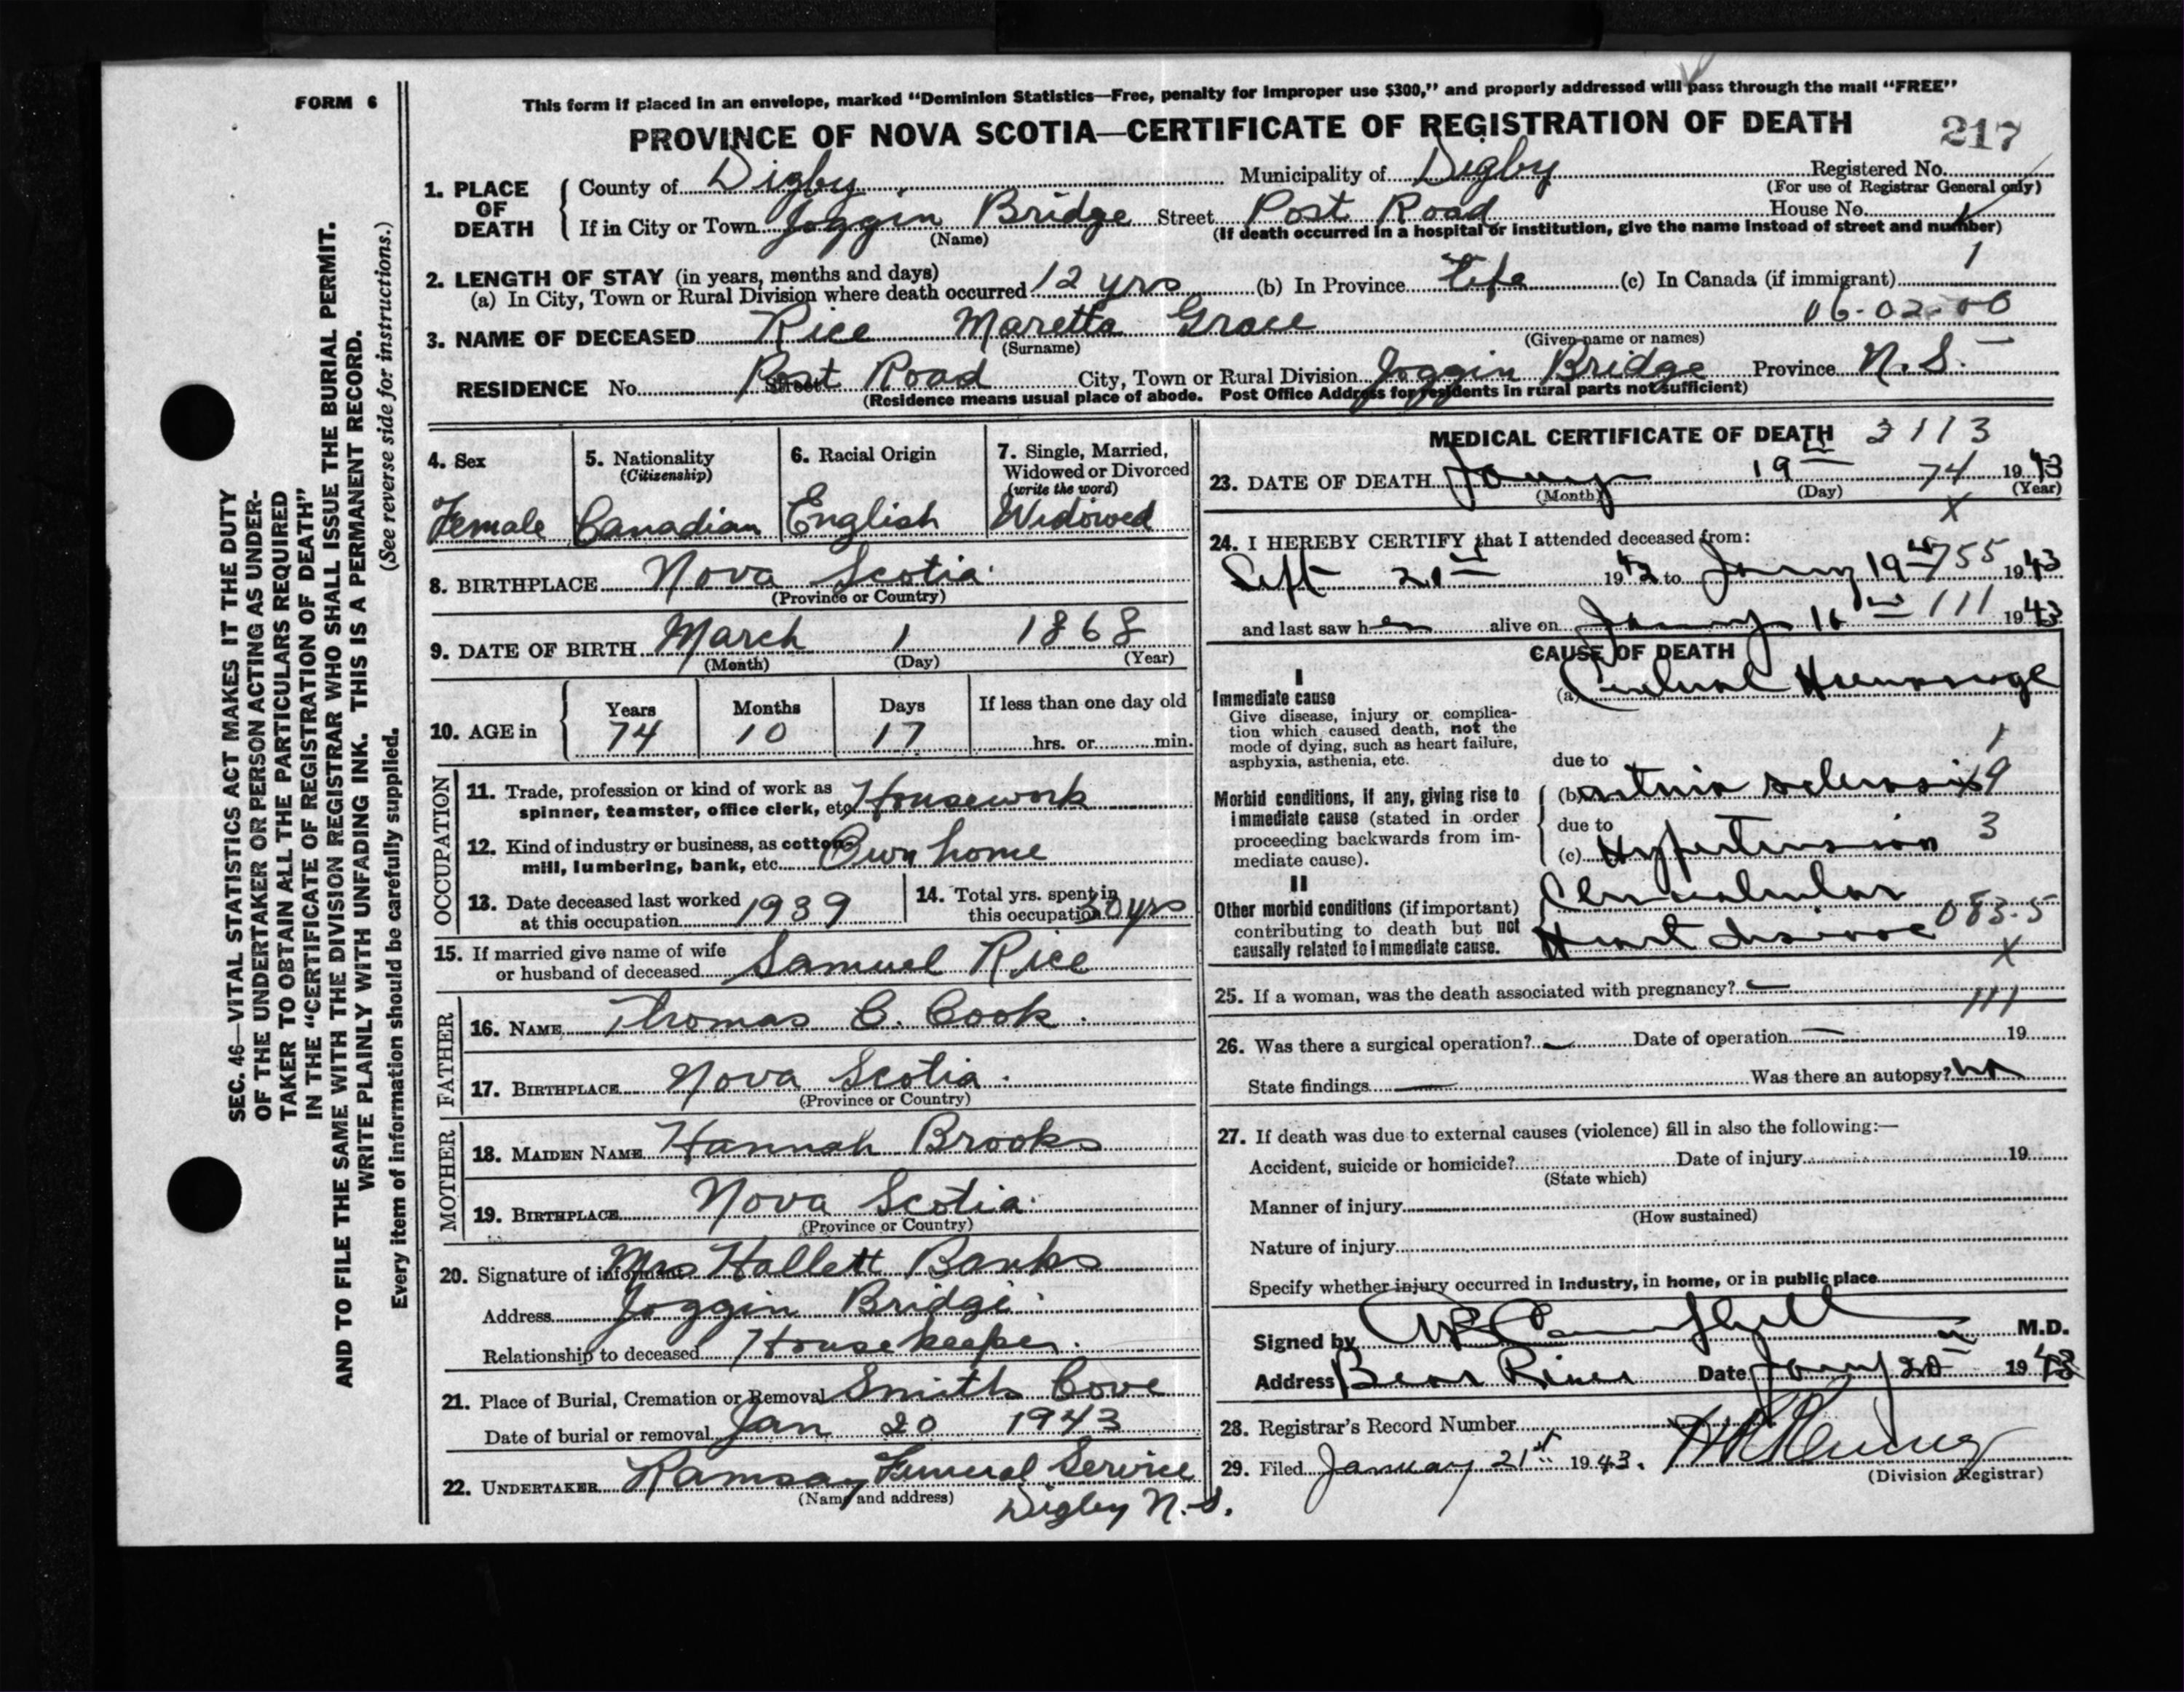 FORM 6
This form if placed in an envelope, marked "Dominion Statistics—Free, penalty for improper use $300," and properly addressed will pass through the mail "FREE"
PROVINCE OF NOVA SCOTIA—CERTIFICATE OF REGISTRATION OF DEATH
217
1. PLACE OF DEATH
County of Digby Municipality of Digby Registered No.
(For use of Registrar General only)
If in City or Town Joggin Bridge Street Post Road House No.
(Name) (If death occurred in a hospital or institution, give the name instead of street and number)
2. LENGTH OF STAY (in years, months and days) 1
(a) In City, Town or Rural Division where death occurred 12 yrs (b) In Province Life (c) In Canada (if immigrant)
06-02-00
3. NAME OF DECEASED Rice Maretta Grace
(Surname) (Given name or names)
RESIDENCE No. Post Road Street City, Town or Rural Division Joggin Bridge Province N.S.
(Residence means usual place of abode. Post Office Address for residents in rural parts not sufficient)
SEC. 46—VITAL STATISTICS ACT MAKES IT THE DUTY
OF THE UNDERTAKER OR PERSON ACTING AS UNDER-
TAKER TO OBTAIN ALL THE PARTICULARS REQUIRED
IN THE "CERTIFICATE OF REGISTRATION OF DEATH"
AND TO FILE THE SAME WITH THE DIVISION REGISTRAR WHO SHALL ISSUE THE BURIAL PERMIT.
WRITE PLAINLY WITH UNFADING INK. THIS IS A PERMANENT RECORD.
Every item of information should be carefully supplied. (See reverse side for instructions.)
4. Sex
Female
5. Nationality
(Citizenship)
Canadian
6. Racial Origin
English
7. Single, Married,
Widowed or Divorced
(write the word)
Widowed
8. BIRTHPLACE Nova Scotia
(Province or Country)
9. DATE OF BIRTH March 1 1868
(Month) (Day) (Year)
10. AGE in Years 74 Months 10 Days 17 If less than one day old
hrs. or min.
OCCUPATION
11. Trade, profession or kind of work as
spinner, teamster, office clerk, etc. Housework
12. Kind of industry or business, as cotton-
mill, lumbering, bank, etc. Own home
13. Date deceased last worked
at this occupation 1939
14. Total yrs. spent in
this occupation 50 yrs
15. If married give name of wife
or husband of deceased Samuel Rice
FATHER
16. NAME Thomas C. Cook
17. BIRTHPLACE Nova Scotia
(Province or Country)
MOTHER
18. MAIDEN NAME Hannah Brooks
19. BIRTHPLACE Nova Scotia
(Province or Country)
20. Signature of informant Mrs Hallett Banks
Address Joggin Bridge
Relationship to deceased Housekeeper
21. Place of Burial, Cremation or Removal Smith Cove
Date of burial or removal Jan 20 1943
22. UNDERTAKER Ramsay Funeral Service
(Name and address) Digby N.S.
MEDICAL CERTIFICATE OF DEATH 3113
23. DATE OF DEATH Jany 19th 74 1943
(Month) (Day) (Year)
X
24. I HEREBY CERTIFY that I attended deceased from:
Sept 20th 1942 to Jany 19th 755 1943
and last saw her alive on Jany 16th 111 1943
CAUSE OF DEATH
I
Immediate cause
Give disease, injury or complica-
tion which caused death, not the
mode of dying, such as heart failure,
asphyxia, asthenia, etc.
(a) Cerebral Hemorrage
1
due to
Morbid conditions, if any, giving rise to
immediate cause (stated in order
proceeding backwards from im-
mediate cause).
(b) arterio sclerosis 9
due to 3
(c) Hypertension
II
Other morbid conditions (if important)
contributing to death but not
causally related to immediate cause.
Heart disease 083.5
X
25. If a woman, was the death associated with pregnancy? —
111
26. Was there a surgical operation? — Date of operation — 19
State findings — Was there an autopsy? no
27. If death was due to external causes (violence) fill in also the following:—
Accident, suicide or homicide? Date of injury 19
(State which)
Manner of injury
(How sustained)
Nature of injury
Specify whether injury occurred in Industry, in home, or in public place
Signed by M.D.
Address Bear River Date Jany 20th 1943
28. Registrar's Record Number
29. Filed January 21st 1943.
(Division Registrar)